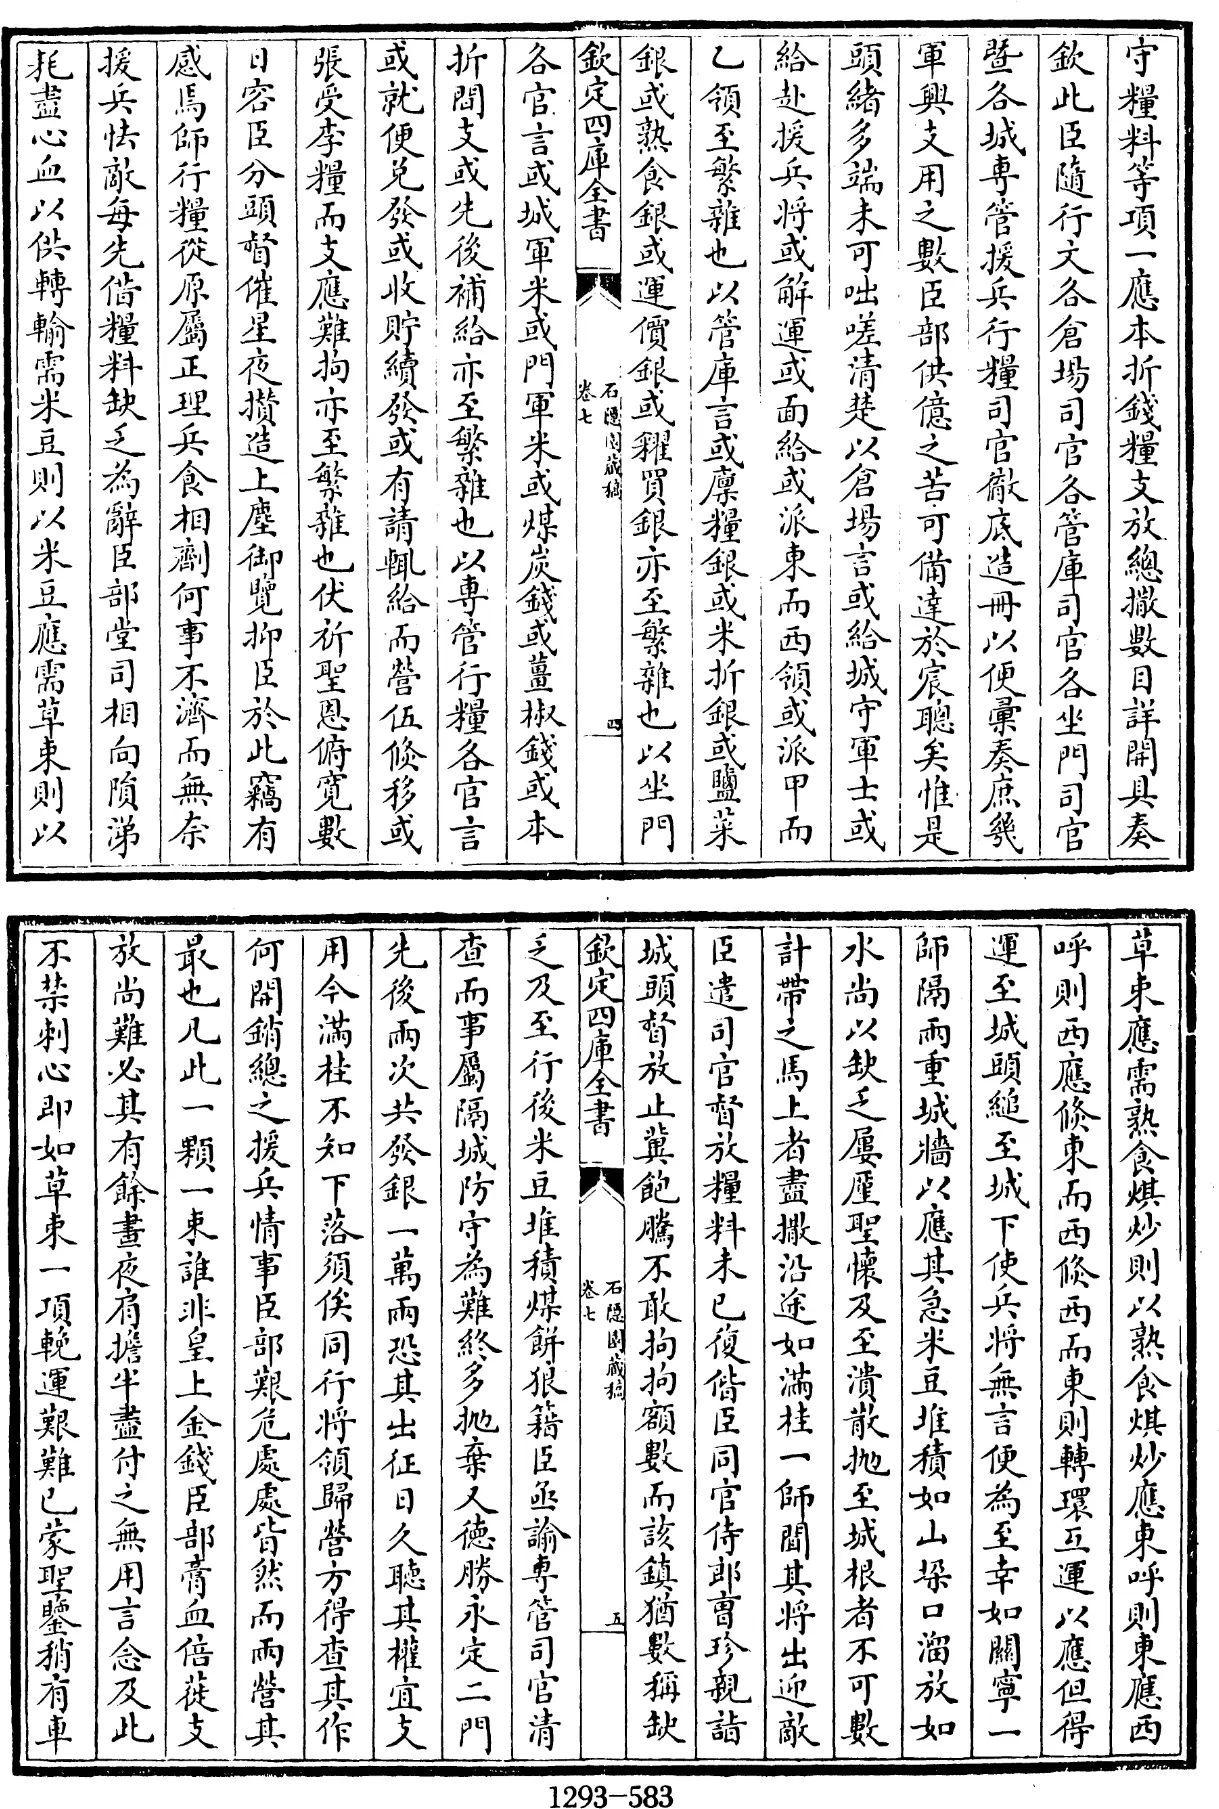 守糧料等項一應本折錢糧支放總撒數目詳開具奏
欽此臣隨行文各倉場司官各管庫司官各坐門司官
暨各城專管援兵行糧司官徹底造冊以便彙奏庶幾
軍興支用之數臣部供億之苦可備達於宸聰矣惟是
頭緒多端未可咄嗟清楚以倉場言或給城守軍士或
給赴援兵將或解運或面給或派東而西領或派甲而
乙領至繁雜也以管庫言或廩糧銀或米折銀或鹽菜
銀或熟食銀或運價銀或糴買銀亦至繁雜也以坐門
欽定四庫全書
石隱園藏稿
卷七
四
各官言或城軍米或門軍米或煤炭錢或薑椒錢或本
折間支或先後補給亦至繁雜也以專管行糧各官言
或就便兌發或收貯續發或有請輒給而營伍倏移或
張受李糧而支應難拘亦至繁雜也伏祈聖恩俯寬數
日容臣分頭督催星夜攢造上塵御覽抑臣於此竊有
感焉師行糧從原屬正理兵食相劑何事不濟而無奈
援兵怯敵每先借糧料缺乏為辭臣部堂司相向隕涕
耗盡心血以供轉輸需米豆則以米豆應需草束則以
草束應需熟食熯炒則以熟食熯炒應東呼則東應西
呼則西應倏東而西倏西而東則轉環互運以應但得
運至城頭縋至城下使兵將無言便為至幸如關寧一
師隔兩重城牆以應其急米豆堆積如山垜口溜放如
水尚以缺乏屢厪聖懷及至潰散拋至城根者不可數
計帶之馬上者盡撒沿途如滿桂一師聞其將出迎敵
臣遣司官督放糧料未已復偕臣同官侍郎曹珍親詣
城頭督放止冀飽騰不敢拘拘額數而該鎮猶數稱缺
欽定四庫全書
石隱園藏稿
卷七
五
乏及至行後米豆堆積煤餅狼籍臣亟諭專管司官清
查而事屬隔城防守為難終多拋棄又德勝永定二門
先後兩次共發銀一萬兩恐其出征日久聽其權宜支
用今滿桂不知下落須俟同行將領歸營方得查其作
何開銷總之援兵情事臣部艱危處處皆然而兩營其
最也凡此一顆一束誰非皇上金錢臣部膏血倍蓰支
放尚難必其有餘晝夜肩擔半盡付之無用言念及此
不禁刺心即如草束一項輓運艱難已蒙聖鑒稍有車
1293-583